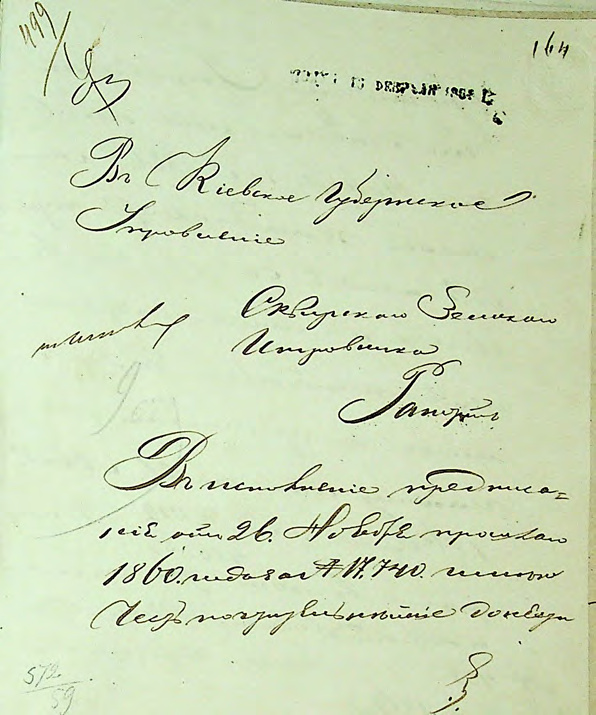 499
164
Въ Кіевское Губернское
Управленіе
Сквирскаго Земскаго
Исправника
Рапортъ
Въ исполненіе предписа=
нія отъ 26. Нояб прошлаго
1860. года за № 17,740. имѣю
Честь почтительнѣйше донести
572
59